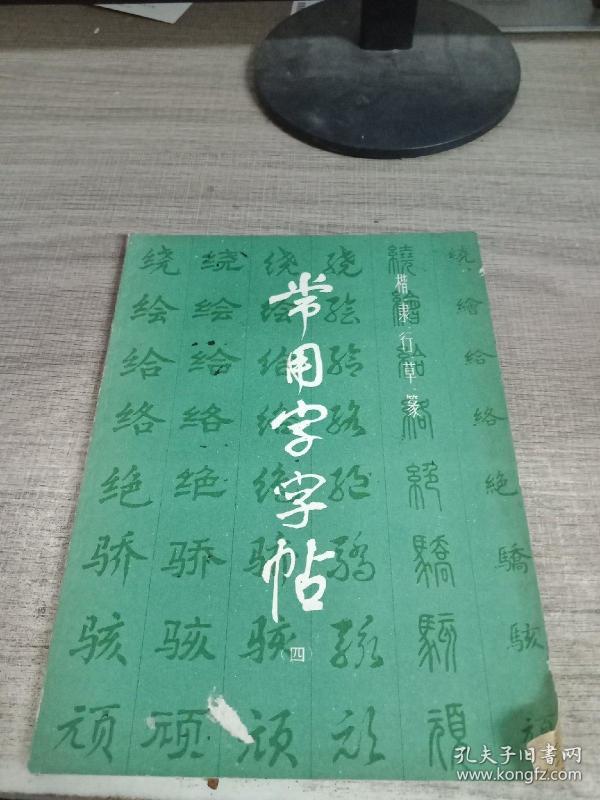 楷隶行草篆
常用字字帖
(四)
绕 绕 绕 绕 繞 绕
绘 绘 绘 绘 繪 繪
给 给 给 给 給 給
络 络 络 络 絡 絡
绝 绝 绝 绝 絕 絶
骄 骄 骄 驕 驕 驕
骇 骇 骇 骇 駭 駭
顽 顽 顽 顽 頑 頑
孔夫子旧书网
www.kongfz.com